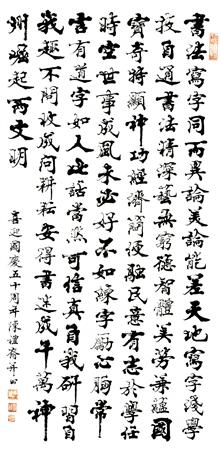 書法寫字同而異論美論能差天地寫字淺學
技自通書法精深藝無窮德智體美勞國
寶奇特顯神功經濟簡便融民意有志於學任
時空世事成風未必好不如練字勵心胸常
言有道字如人此話當然可信真自我研習自
我趣不問收成問耕耘安得書迷成千萬神
州崛起兩文明
喜迎國慶五十周年陳禮齊并